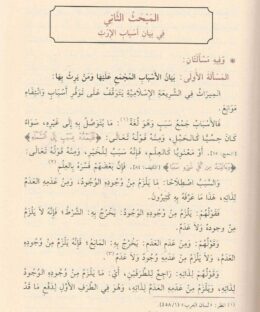 المَبْحَثُ الثَّانِي
فِي بَيَانِ أَسْبَابِ الإِرْثِ
* وَفِيهِ مَسْأَلَتَانِ:
المَسْأَلَةُ الأُولَى: بَيَانُ الأَسْبَابِ المُجْمَعِ عَلَيْهَا وَمَنْ يَرِثُ بِهَا.
المِيرَاثُ فِي الشَّرِيعَةِ الإِسْلَامِيَّةِ يَتَوَقَّفُ عَلَى تَوَفُّرِ أَسْبَابٍ وَانْتِفَاءِ
مَوَانِعَ.
فَالأَسْبَابُ جَمْعُ سَبَبٍ وَهُوَ لُغَةً(١): مَا يُتَوَصَّلُ بِهِ إِلَى غَيْرِهِ، سَوَاءٌ
كَانَ حِسِّيًّا كَالحَبْلِ، وَمِنْهُ قَوْلُهُ تَعَالَى: ﴿فَلْيَمْدُدْ بِسَبَبٍ إِلَى السَّمَاءِ﴾
أَوْ مَعْنَوِيًّا كَالعِلْمِ، فَإِنَّهُ سَبَبٌ لِلْخَيْرِ، وَمِنْهُ قَوْلُهُ تَعَالَى:
فَإِنَّ بَعْضَهُمْ فَسَّرَهُ بِالعِلْمِ(٢)
وَالسَّبَبُ اصْطِلَاحًا: مَا يَلْزَمُ مِنْ وُجُودِهِ الوُجُودُ، وَمِنْ عَدَمِهِ العَدَمُ
لِذَاتِهِ، هَذَا مَا عَرَّفَهُ بِهِ كَثِيرُونَ.
فَقَوْلُهُمْ: مَا يَلْزَمُ مِنْ وُجُودِهِ الوُجُودُ: يَخْرُجُ بِهِ: الشَّرْطُ، فَإِنَّهُ لَا يَلْزَمُ
مِنْ وُجُودِهِ وُجُودٌ وَلَا عَدَمٌ.
وَقَوْلُهُمْ: وَمِنْ عَدَمِهِ العَدَمُ: يَخْرُجُ بِهِ: المَانِعُ، فَإِنَّهُ يَلْزَمُ مِنْ وُجُودِهِ
العَدَمُ، وَلَا يَلْزَمُ مِنْ عَدَمِهِ وُجُودٌ وَلَا عَدَمٌ(٣).
وَقَوْلُهُمْ: لِذَاتِهِ: رَاجِعٌ لِلطَّرَفَيْنِ، أَيْ: مَا يَلْزَمُ مِنْ وُجُودِهِ الوُجُودُ
لِذَاتِهِ، وَمِنْ عَدَمِهِ العَدَمُ لِذَاتِهِ، وَهُوَ فِي الطَّرَفِ الأَوَّلِ لِدَفْعِ مَا قَدْ
(١) انظر: «لسان العرب» (٤٥٨/١)